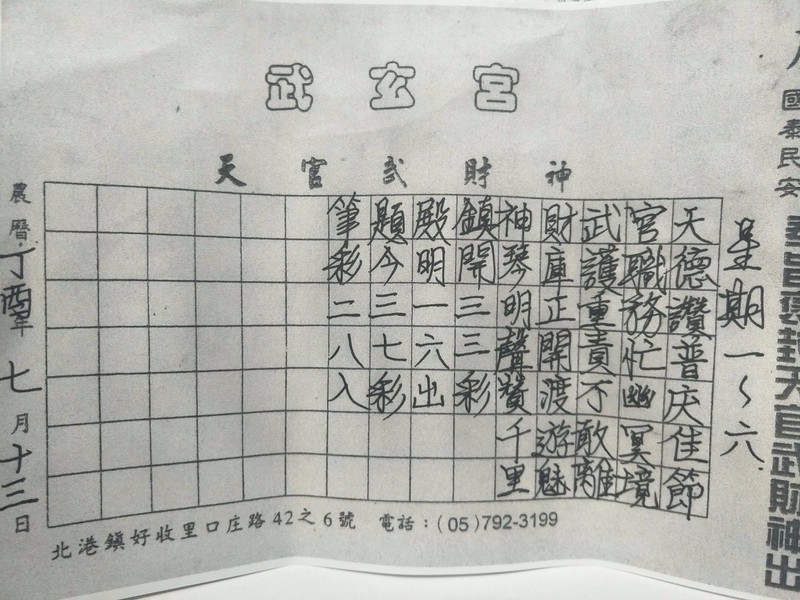 武玄宮
天官武財神
國泰民安
奉旨褒封天官武財神出
星期一～六
天德讚普庆佳節
官職務忙幽冥境
武護重責不敢離
財庫正開渡遊魅
神琴明聲贊千里
鎮開三三彩
殿明一六出
題今三七彩
筆彩二八入
農曆丁酉年七月十三日
北港鎮好收里口庄路42之6號 電話：(05)792-3199